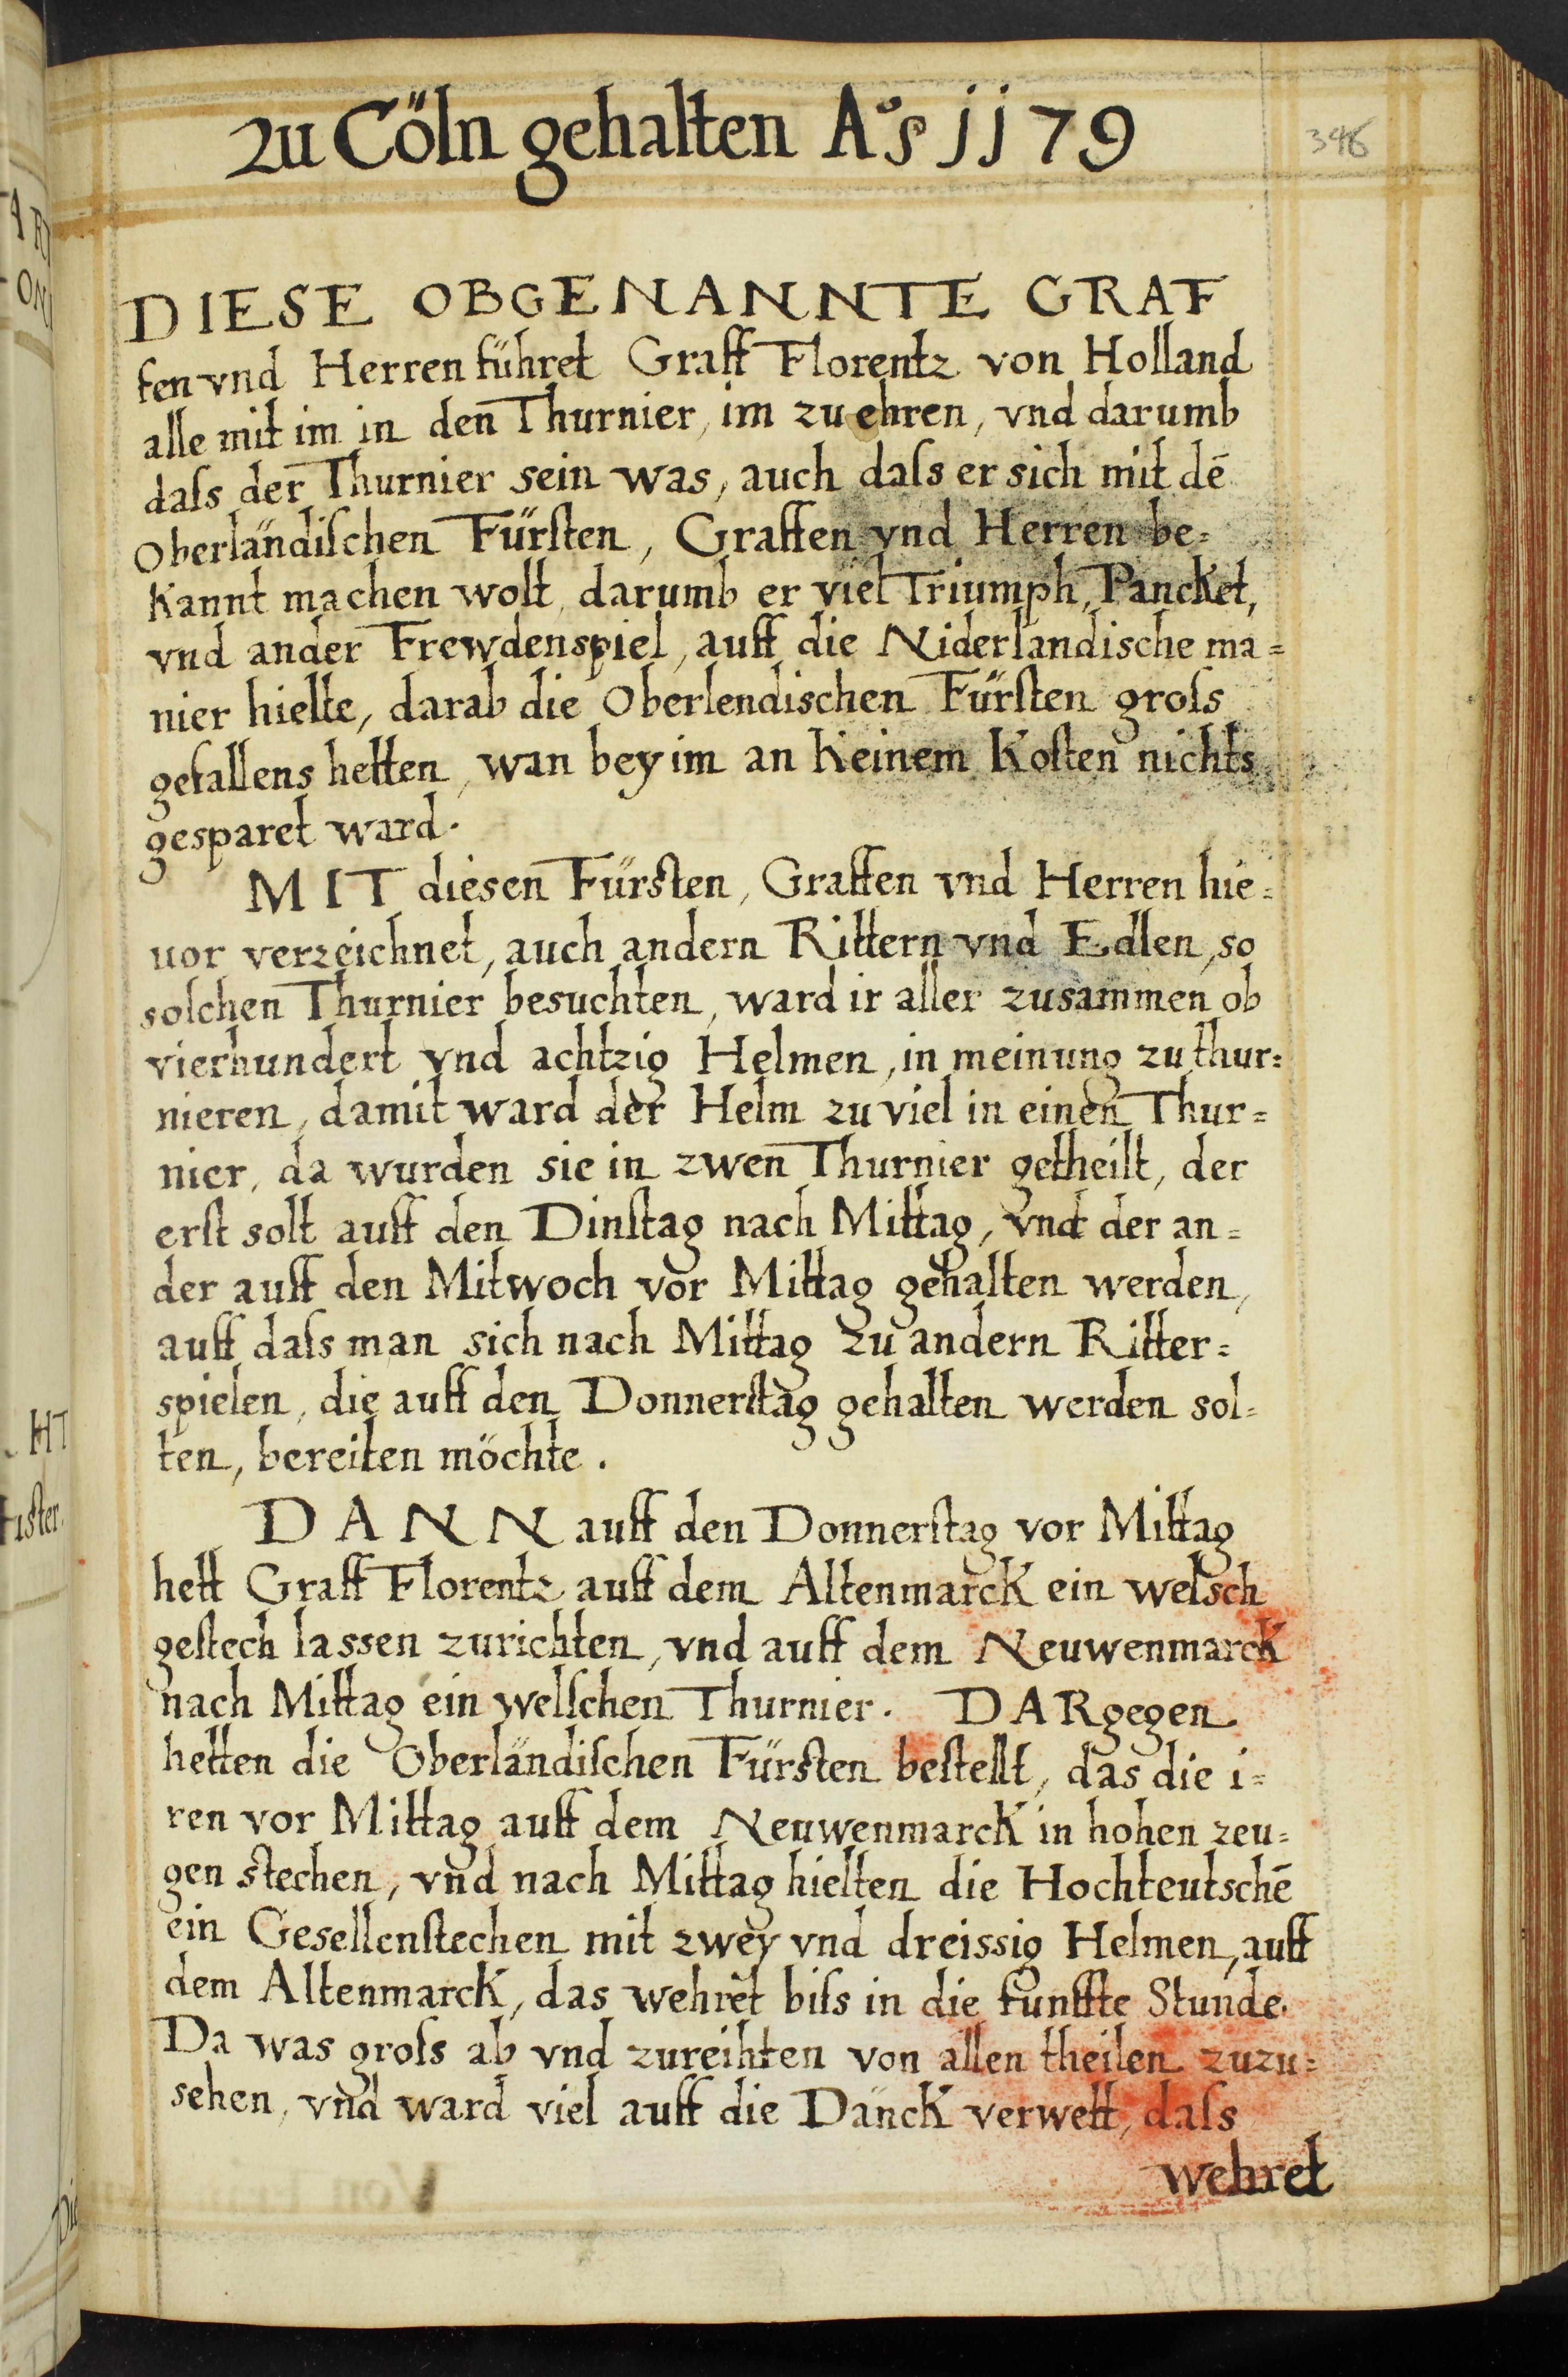 zu Cöln gehalten Aõs jj79
346
DIESE OBGENANNTE GRAF
fen vnd Herren führet Graff Florentz von Holland
alle mit im in den Thurnier, im zu ehren, vnd darumb
daſs der Thurnier sein was, auch daſs er sich mit dē
Oberländiſchen Fürſten, Graffen vnd Herren be=
kannt machen wolt, darumb er viel Triumph, Pancket,
vnd ander Frewdenspiel, auff die Niderlandische ma=
nier hielte, darab die Oberlendischen Fürſten groſs
gefallens hetten, wan bey im an keinem Koſten nichts
gesparet ward.
MIT diesen Fürſten, Graffen vnd Herren hie=
uor verzeichnet, auch andern Rittern vnd Edlen, so
solchen Thurnier besuchten, ward ir aller zusammen ob
vierhundert vnd achtzig Helmen, in meinung zu thur=
nieren, damit ward der Helm zu viel in einen Thur=
nier, da wurden sie in zwen Thurnier getheilt, der
erſt solt auff den Dinſtag nach Mittag, vnd der an=
der auff den Mitwoch vor Mittag gehalten werden,
auff daſs man sich nach Mittag zu andern Ritter=
spielen, die auff den Donnerſtag gehalten werden sol=
ten, bereiten möchte.
DANN auff den Donnerſtag vor Mittag
hett Graff Florentz auff dem Altenmarck ein welsch
geſtech lassen zurichten, vnd auff dem Neuwenmarck
nach Mittag ein welſchen Thurnier. DARgegen
hetten die Oberländiſchen Fürſten beſtellt, das die i=
ren vor Mittag auff dem Neuwenmarck in hohen zeu=
gen ſtechen, vnd nach Mittag hielten die Hochteutschē
ein Gesellenſtechen mit zwey vnd dreissig Helmen, auff
dem Altenmarck, das wehret biſs in die funffte Stunde.
Da was groſs ab vnd zureihten von allen theilen zuzu=
sehen, vnd ward viel auff die Dänck verwett, daſs
wehret